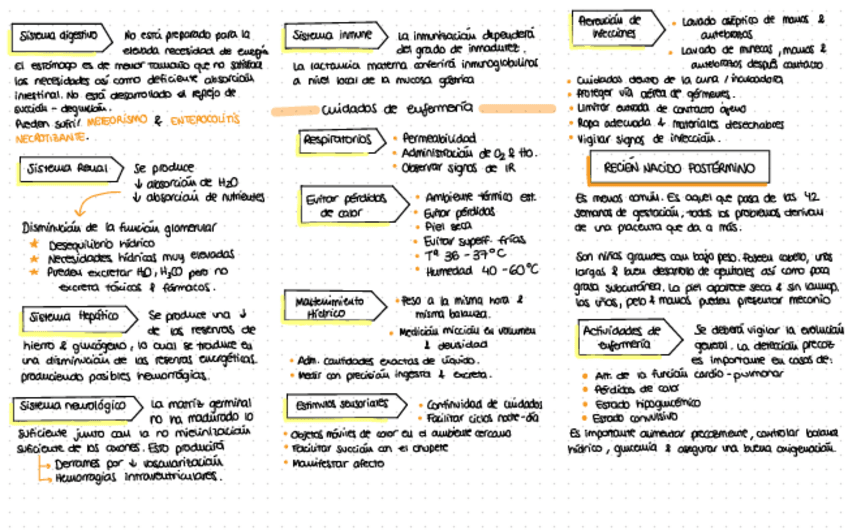 Sistema digestivo
No está preparado para la
elevada necesidad de energía
El estómago es de menor tamaño que no satisface
las necesidades así como deficiente absorción
intestinal. No está desarrollado el reflejo de
succión - deglución.
Pueden sufrir METEORISMO & ENTEROCOLITIS
NECROTIZANTE.
Sistema Renal
Se produce
↓ absorción de H2O
↓ absorción de nutrientes
Disminución de la función glomerular
★ Desequilibrio hídrico
★ Necesidades hídricas muy elevadas
★ Pueden excretar H2O, pero no
excreta tóxicos & fármacos.
Sistema Hepático
Se produce una ↓
de las reservas de
hierro & glucógeno, lo cual se traduce en
una disminución de las reservas energéticas.
produciendo posibles hemorragias.
Sistema neurológico
La matriz germinal
no ha madurado lo
suficiente junto con la no mielinización
suficiente de los axones. Esto producirá
Derrames por ↓ vascularización
Hemorragias intraventriculares.
Sistema inmune
La inmunización dependerá
del grado de inmadurez.
La lactancia materna conferirá inmunoglobulinas
a nivel local de la mucosa gástrica
cuidados de enfermería
Respiratorios
• Permeabilidad
• Administración de O2 & Ho.
• Observar signos de IR
Evitar pérdidas
de calor
• Ambiente térmico est.
• Evitar pérdidas
• Piel seca
• Evitar superf. frías
• Tª 36 - 37°C
• Humedad 40 - 60°C
Mantenimiento
Hídrico
• Peso a la misma hora &
misma balanza.
• Medición micción en volumen
& densidad
• Adm. cantidades exactas de líquido.
• Medir con precisión ingesta & excreta.
Estímulos sensoriales
• Continuidad de cuidados
• Facilitar ciclos noche-día
• Objetos móviles de color en el ambiente cercano
• Facilitar succión con el chupete
• Manifestar afecto
Prevención de
infecciones
• Lavado aséptico de manos &
antebrazos
• Lavado de muñecas, manos &
antebrazos después contacto
• Cuidados dentro de la cuna / incubadora
• Proteger vía aérea de gérmenes.
• Limitar entrada de contacto ajeno
• Ropa adecuada & materiales desechables
• Vigilar signos de infección.
RECIÉN NACIDO POSTÉRMINO
Es menos común. Es aquel que pasa de las 42
semanas de gestación, todos los problemas derivan
de una placenta que da a más.
Son niños grandes con bajo peso. Poseen cabello, uñas
largas & buen desarrollo de genitales así como poca
grasa subcutánea. La piel aparece seca & sin lanugo.
las uñas, pelo & manos pueden presentar meconio
Actividades de
enfermería
Se deberá vigilar la evolución
general. La detección precoz
es importante en casos de:
• Alt. de la función cardio-pulmonar
• Pérdidas de calor
• Estado hipoglucémico
• Estado convulsivo
Es importante alimentar precozmente, controlar balance
hídrico, glucemia & asegurar una buena oxigenación.